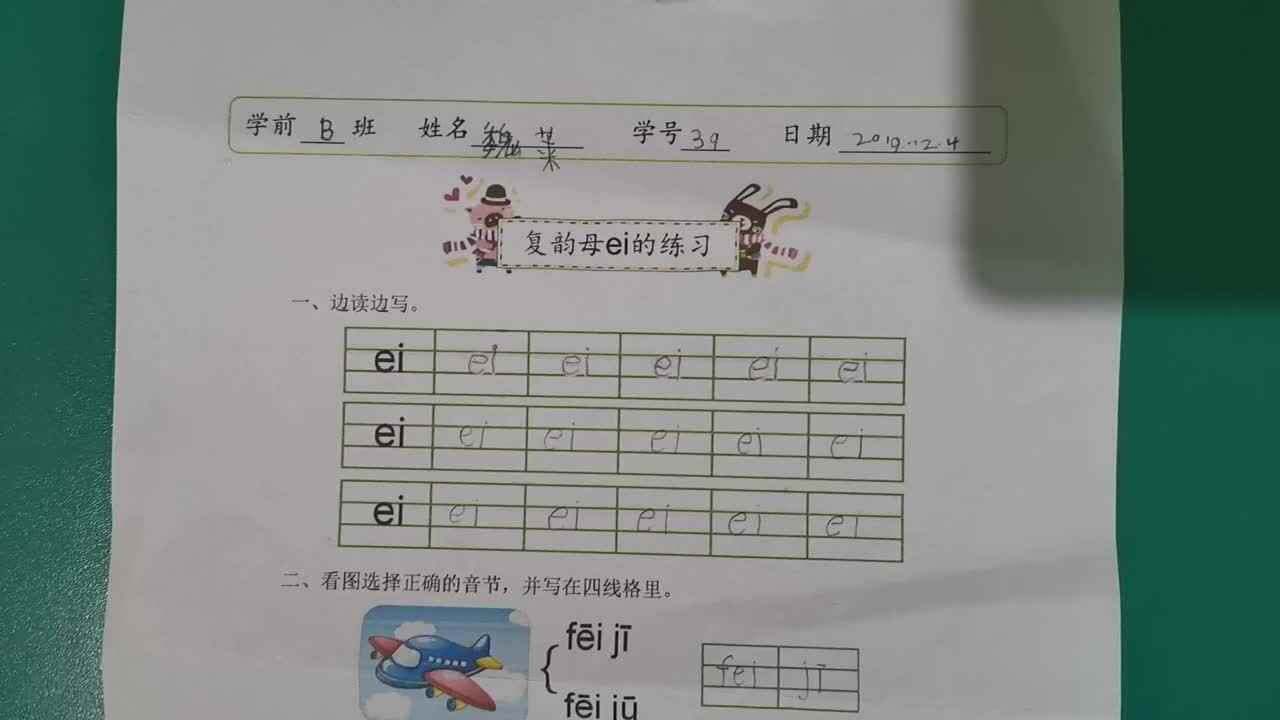 学前 B 班 姓名 魏 菜 学号 39 日期 2019.12.4
复韵母ei的练习
一、边读边写。
ei ei ei ei ei ei
ei ei ei ei ei ei
ei ei ei ei ei ei
二、看图选择正确的音节，并写在四线格里。
fēi jī
fei jī
fēi jū